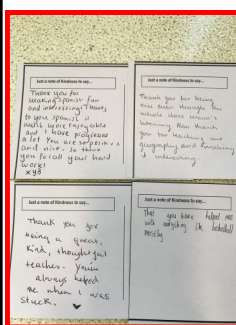 Just a note of Kindness to say...
Thank you for
making spanish fun
and interesting! Thanks
to you spanish is
much more enjoyable
and I have progressed
a lot. You are so positive
and nice. So thank
you for all your hard
work!
xyo
Just a note of Kindness to say...
Thank you for being
nice even though the
whole class wasn't
listening. Also thank
you for teaching me
geography and making
it interesting.
Just a note of Kindness to say...
Thank you for
being a great,
kind, thoughtful
teacher. You've
always helped
me when I was
stuck.
Just a note of Kindness to say...
That you have helped me
with anything like basketball
mostly